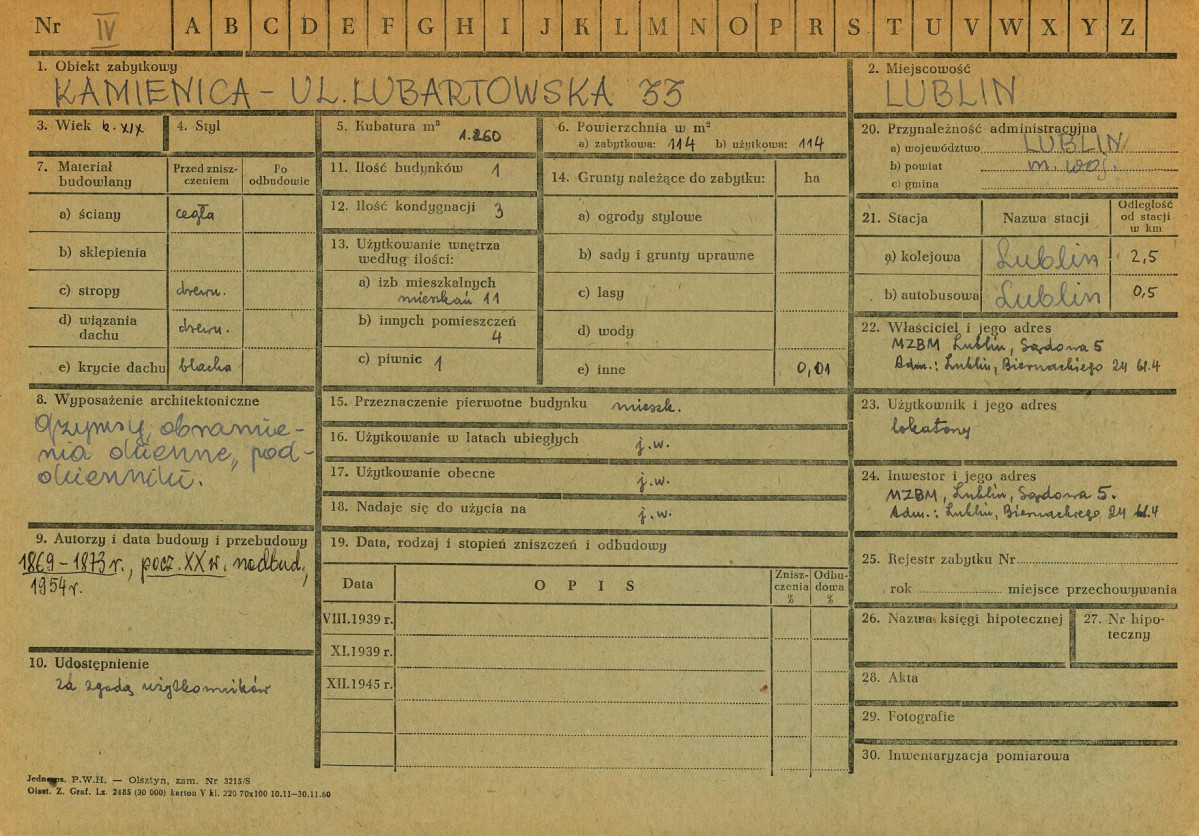 Nr IV A B C D E F G H I J K L M N O P R S T U V W X Y Z
1. Obiekt zabytkowy
KAMIENICA – UL. LUBARTOWSKA 33
2. Miejscowość
LUBLIN
3. Wiek k. XIX
4. Styl
5. Kubatura m³ 1.260
6. Powierzchnia w m²
a) zabytkowa: 114 b) użytkowa: 114
20. Przynależność administracyjna
a) województwo LUBLIN
b) powiat m. woj.
c) gmina
7. Materiał budowlany
Przed zniszczeniem
Po odbudowie
a) ściany cegła
b) sklepienia
c) stropy drewn.
d) wiązania dachu drewn.
e) krycie dachu blacha
11. Ilość budynków 1
12. Ilość kondygnacji 3
13. Użytkowanie wnętrza
według ilości:
a) izb mieszkalnych
mieszkań 11
b) innych pomieszczeń
4
c) piwnic 1
14. Grunty należące do zabytku: ha
a) ogrody stylowe
b) sady i grunty uprawne
c) lasy
d) wody
e) inne 0,01
21. Stacja Nazwa stacji Odległość od stacji w km
a) kolejowa Lublin 2,5
b) autobusowa Lublin 0,5
22. Właściciel i jego adres
MZBM Lublin, Sądowa 5
Adm.: Lublin, Biernackiego 24 bl.4
8. Wyposażenie architektoniczne
Gzymsy, obramie-
nia okienne, pod-
okienniki.
15. Przeznaczenie pierwotne budynku mieszk.
16. Użytkowanie w latach ubiegłych j.w.
17. Użytkowanie obecne j.w.
18. Nadaje się do użycia na j.w.
23. Użytkownik i jego adres
lokatorzy
24. Inwestor i jego adres
MZBM, Lublin, Sądowa 5.
Adm.: Lublin, Biernackiego 24 bl.4
9. Autorzy i data budowy i przebudowy
1869–1873 r., pocz. XX w. nadbud.,
1954 r.
19. Data, rodzaj i stopień zniszczeń i odbudowy
Data OPIS Zniszczenia % Odbudowa %
VIII.1939 r.
XI.1939 r.
XII.1945 r.
25. Rejestr zabytku Nr
rok miejsce przechowywania
26. Nazwa księgi hipotecznej
27. Nr hipo-
teczny
10. Udostępnienie
za zgodą użytkowników
28. Akta
29. Fotografie
30. Inwentaryzacja pomiarowa
P.W.H. — Olsztyn, zam. Nr 3215/S
Olszt. Z. Graf. Lz. 2485 (30 000) karton V kl. 220 70x100 10.11—30.11.60